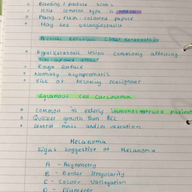 Most common type of
Pearly, flesh coloured papule
May see telangiectasia
Actinic keratosis
Hyperkeratotic lesion commonly affecting
sun-exposed areas
Rough surface
Normally asymptomatic
Risk of becoming malignant
Squamous Cell Carcinoma
Common in elderly
Quicker growth than BCC
Melanoma
Signs suggestive of Melanoma
A - Asymmetry
B - Border Irregularity
C - Colour Variegation
D - Diameter